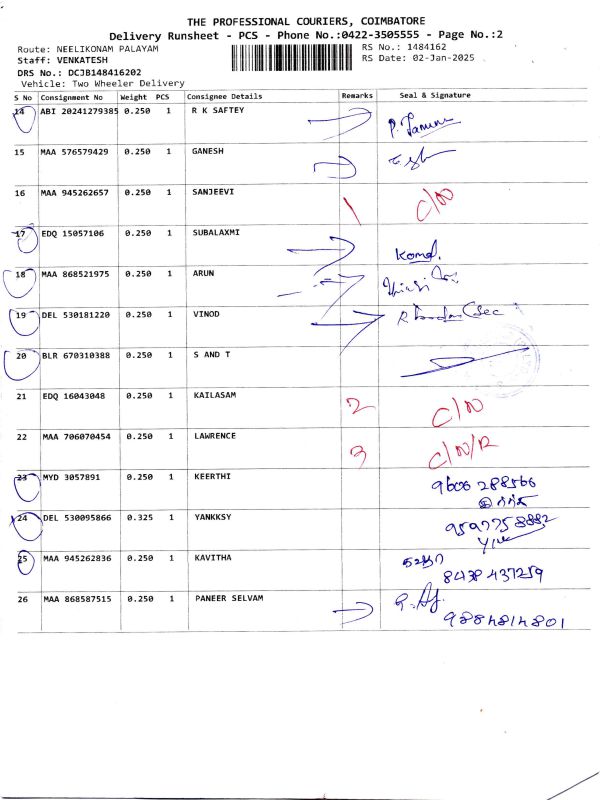 THE PROFESSIONAL COURIERS, COIMBATORE
Delivery Runsheet - PCS - Phone No.:0422-3505555 - Page No.:2
Route: NEELIKONAM PALAYAM
RS No.: 1484162
Staff: VENKATESH
RS Date: 02-Jan-2025
DRS No.: DCJB148416202
Vehicle: Two Wheeler Delivery
S No Consignment No Weight PCS Consignee Details Remarks Seal & Signature
14 ABI 20241279385 0.250 1 R K SAFTEY
15 MAA 576579429 0.250 1 GANESH
16 MAA 945262657 0.250 1 SANJEEVI 1 C/N
17 EDQ 15057106 0.250 1 SUBALAXMI
18 MAA 868521975 0.250 1 ARUN
19 DEL 530181220 0.250 1 VINOD
20 BLR 670310388 0.250 1 S AND T
21 EDQ 16043048 0.250 1 KAILASAM 2 C/N
22 MAA 706070454 0.250 1 LAWRENCE 3 C/N/R
23 MYD 3057891 0.250 1 KEERTHI 9606 288566
24 DEL 530095866 0.325 1 YANKKSY 9597758882
25 MAA 945262836 0.250 1 KAVITHA 8438 437259
26 MAA 868587515 0.250 1 PANEER SELVAM 9884814801